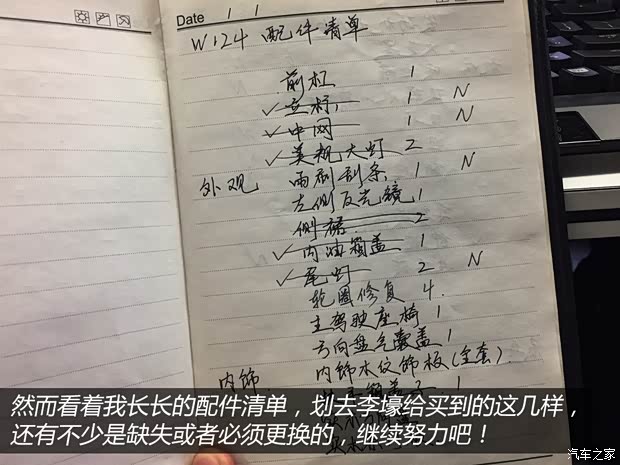 Date 1 1
W124 配件清单
前杠 1
✓立标, 1 N
✓中网 1 N
✓美规大灯 2
外观 雨刷刮条, 1 N
左侧反光镜 1
侧裙 2
✓内油箱盖 1
✓尾灯 2 N
轮圈修复 4.
主驾驶座椅 1
方向盘气囊盖 1
内饰. 内饰木纹饰板(全套)
2 1
然而看着我长长的配件清单，划去李壕给买到的这几样，
还有不少是缺失或者必须更换的，继续努力吧！
汽车之家